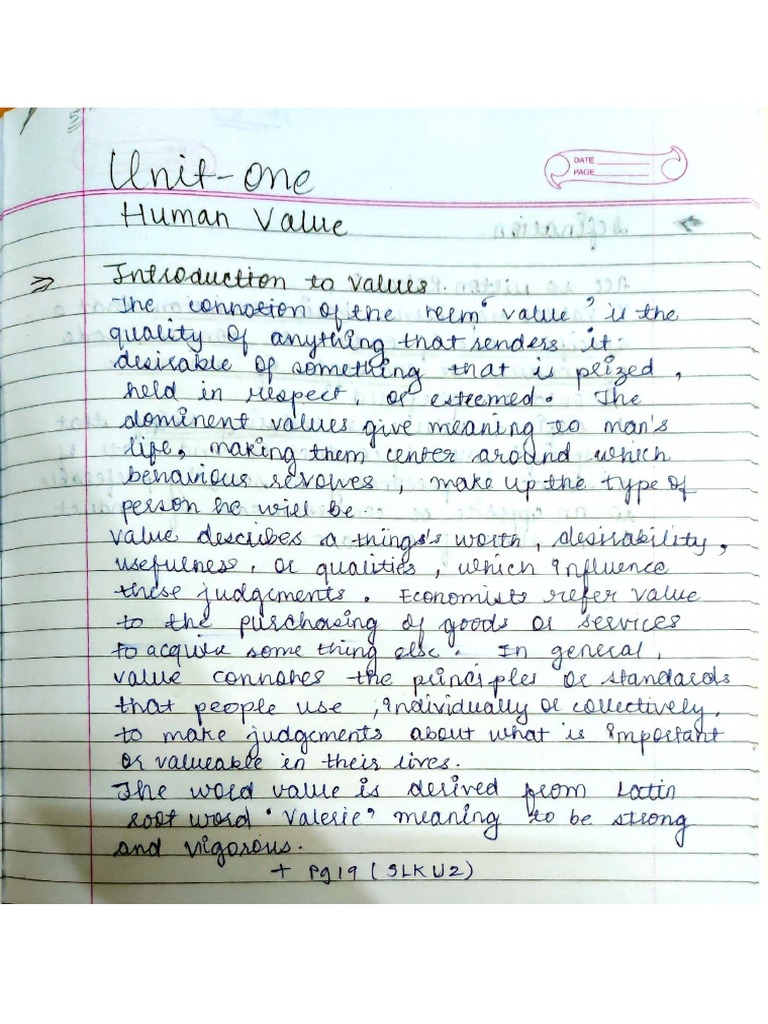 Unit-one
DATE
PAGE
Human Value
⇒ Introduction to values.
The connotion of the reem "value" is the
quality of anything that renders it:
desirable of something that is prized,
held in respect, or esteemed. The
dominent values give meaning to man's
life, making them center around which
behavious revowes, make up the type of
person he will be
value describes a things's worth, desirability,
usefulness, or qualities, which influence
these judgements. Economists refer value
to the purchasing of goods or services
to acquire some thing else. In general,
value connotes the principles or standards
that people use, individually or collectively,
to make judgements about what is important
or valueable in their lives.
The word value is derived from Latin
root word "Valerie" meaning to be strong
and vigorous.
+ Pg 19 (SLK U2)